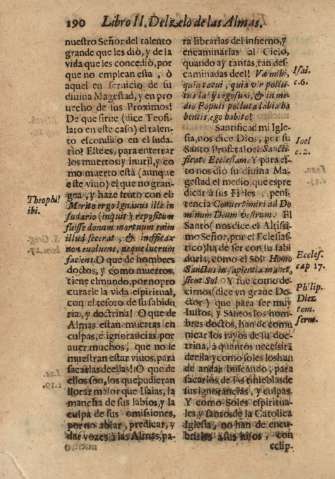 190 Libro II. Del zelo de las Almas.
nuestro Señor del talento
grande que les diò, y de la
vida que les concedió, por
que no emplean esta, ò
aquel en servicio de su
divina Magestad, y en pro
uecho de sus Proximos!
De que sirve (dice Teofi-
lato en este caso) el talen-
to escondido en el suda-
rio? Este es, para enterrar
los muertos; y inutil, y co
mo muerto està (aunque
este vivo) el que no gran-
gea, y haze fruto con el:
Theophil
ibi.
Merito ergo ignavus ille in
sudario (inquit) repositum
fuisse
illud secerat, &
nos
faciens. O que de hombres
doctos, y como muertos,
tiene el mundo, por no pro
curarle la vida espiritual,
con el tesoro de su sabidu
ria, y doctrina! O que de
Almas estan muertas en
culpas, è ignorancias por
auer muchos, que no se
muestran estar viuos, para
sacarlas de ellas! O que de
ellos son, los que pudieran
llorar mejor que Isaias, la
mancha de sus labios, y la
culpa de sus omisiones,
por no ablar, predicar, y
dar vozes à las Almas, pa-
ra librarlas del infierno, y
encaminarlas al Cielo,
quando ay tantas, tan des-
caminadas de el! Væ mihi,
Isai.
c. 6.
quia tacui, quia vir pollu-
tus labijs ego sum, & in me
dio Populi polluta labia ha
bentis ego habito!
Santificad mi Igle-
sia, nos dice Dios, por su
Santo Profeta Ioel: Sancti-
Ioel
c. 2.
ficate Ecclesiam. Y para es-
to nos diò su divina Ma-
gestad el medio, que es pre
dicar à sus Fieles, peni-
tencia Convertimini ad Do
minum Deum vestrum. El
Santo nos dice el Altisi-
mo Señor, por el Ecclesias-
tico, ha de ser con su sabi
duria, como el Sol: Homo
Eccles.
cap 17.
Sanctus in sapientia manet,
sicut Sol. Y fue como de-
cirnos (dice en grado Doc-
Philip.
Diez
tom.
serm.
tor) que para ser muy
Iustos, y Santos los hom-
bres doctos, han de comu
nicar los rayos de su doc-
trina, à quantos necesita
de ella y como soles los han
de andar buscando, para
sacarlos de las tinieblas de
sus ignorancias, y culpas.
Y como Soles espiritua-
les y santos de la Catolica
Iglesia, no han de encu-
brirles à sus hijos, con
eclip-